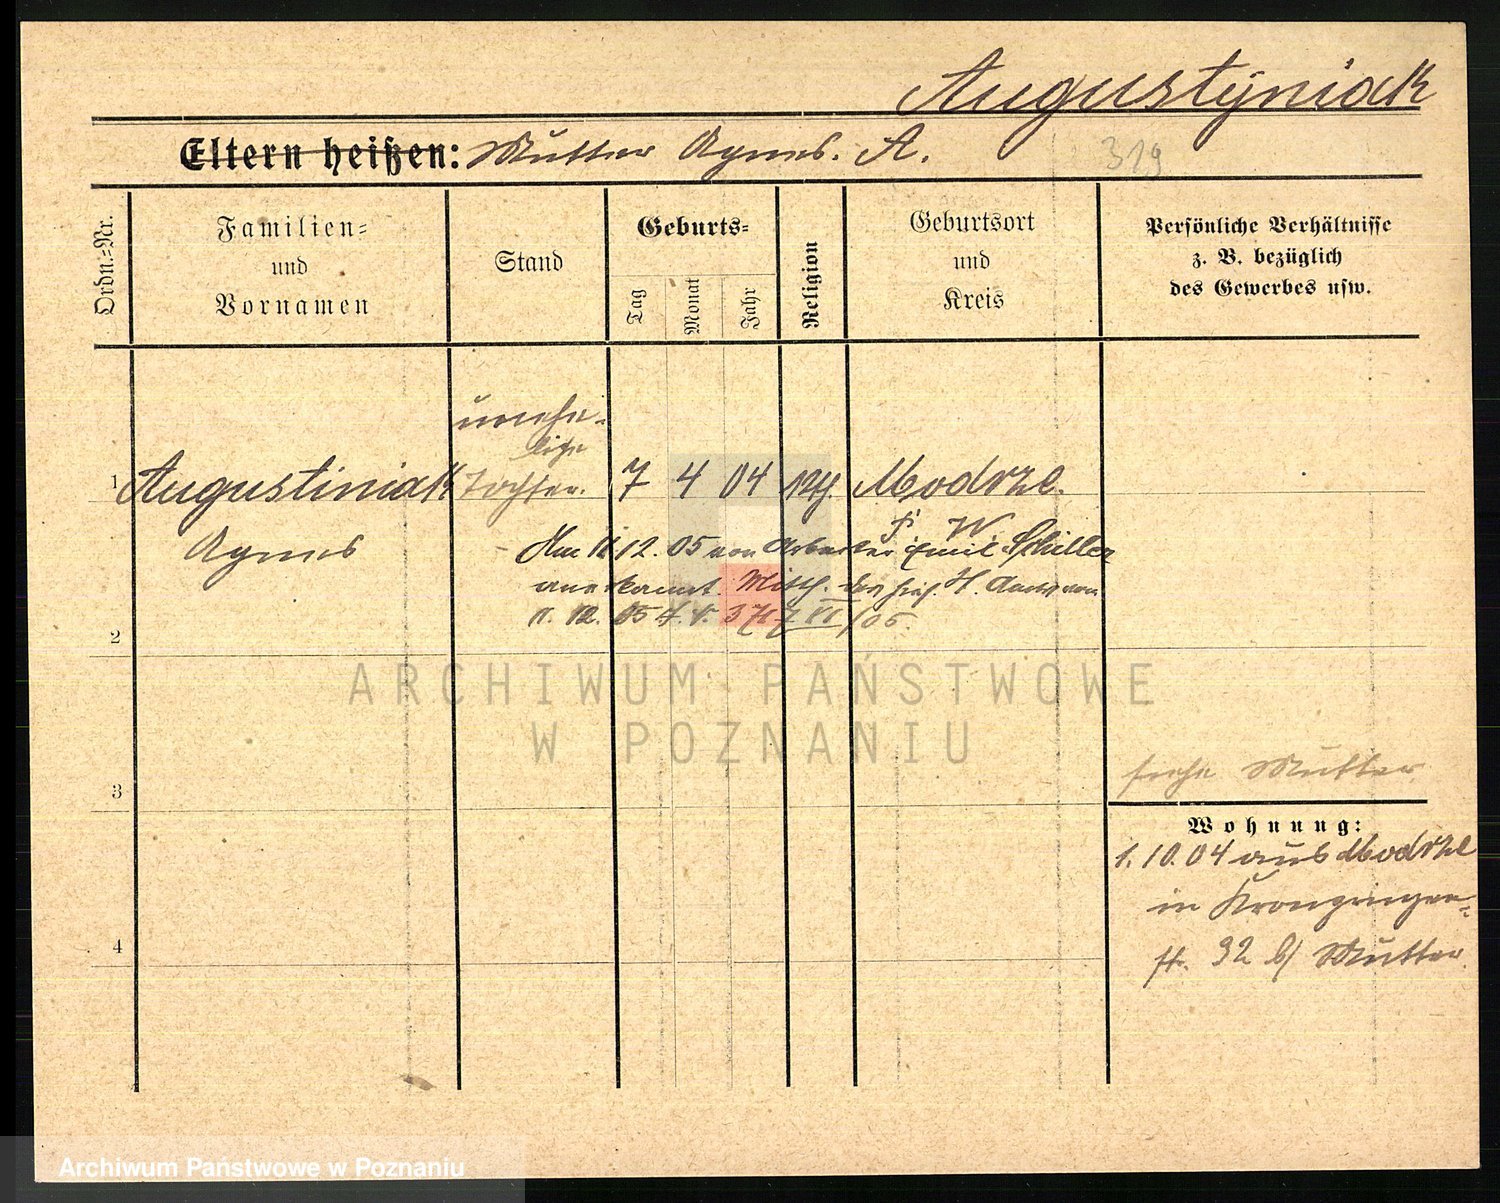 Augustyniak
Eltern heißen: Mutter Agnes. A.
319
Ordn.=Nr.
Familien=
und
Vornamen
Stand
Geburts=
Tag
Monat
Jahr
Religion
Geburtsort
und
Kreis
Persönliche Verhältnisse
z. B. bezüglich
des Gewerbes usw.
unehe-
liche
1 Augustiniak Tochter. 7 4 04 Modrze.
Agnes
Am 11 12. 05 von Arbeiter Emil Schiller
anerkannt. Mitth. des hies. St. Amts von
11. 12. 05
2
ARCHIWUM PAŃSTWOWE
W POZNANIU
siehe Mutter
3
Wohnung:
1. 10. 04 aus Modrze
in Kronprinzen=
str. 32 b/ Mutter.
4
Archiwum Państwowe w Poznaniu